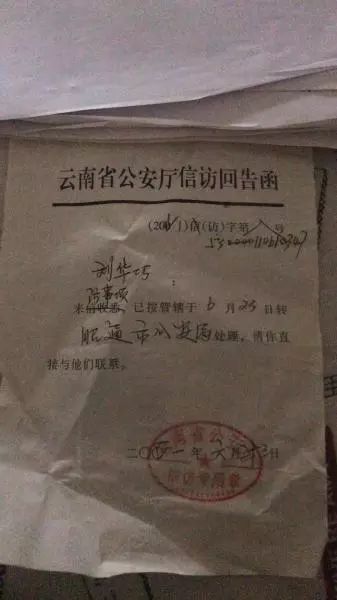 云南省公安厅信访回告函
(2011)信(访)字第 八 号
刘华巧:
访事项
来信收悉,已按管辖于6月23日转
昭通市公安局处理,请你直
接与他们联系。
二〇一一年六月廿三日
云南省公安厅
信访专用章